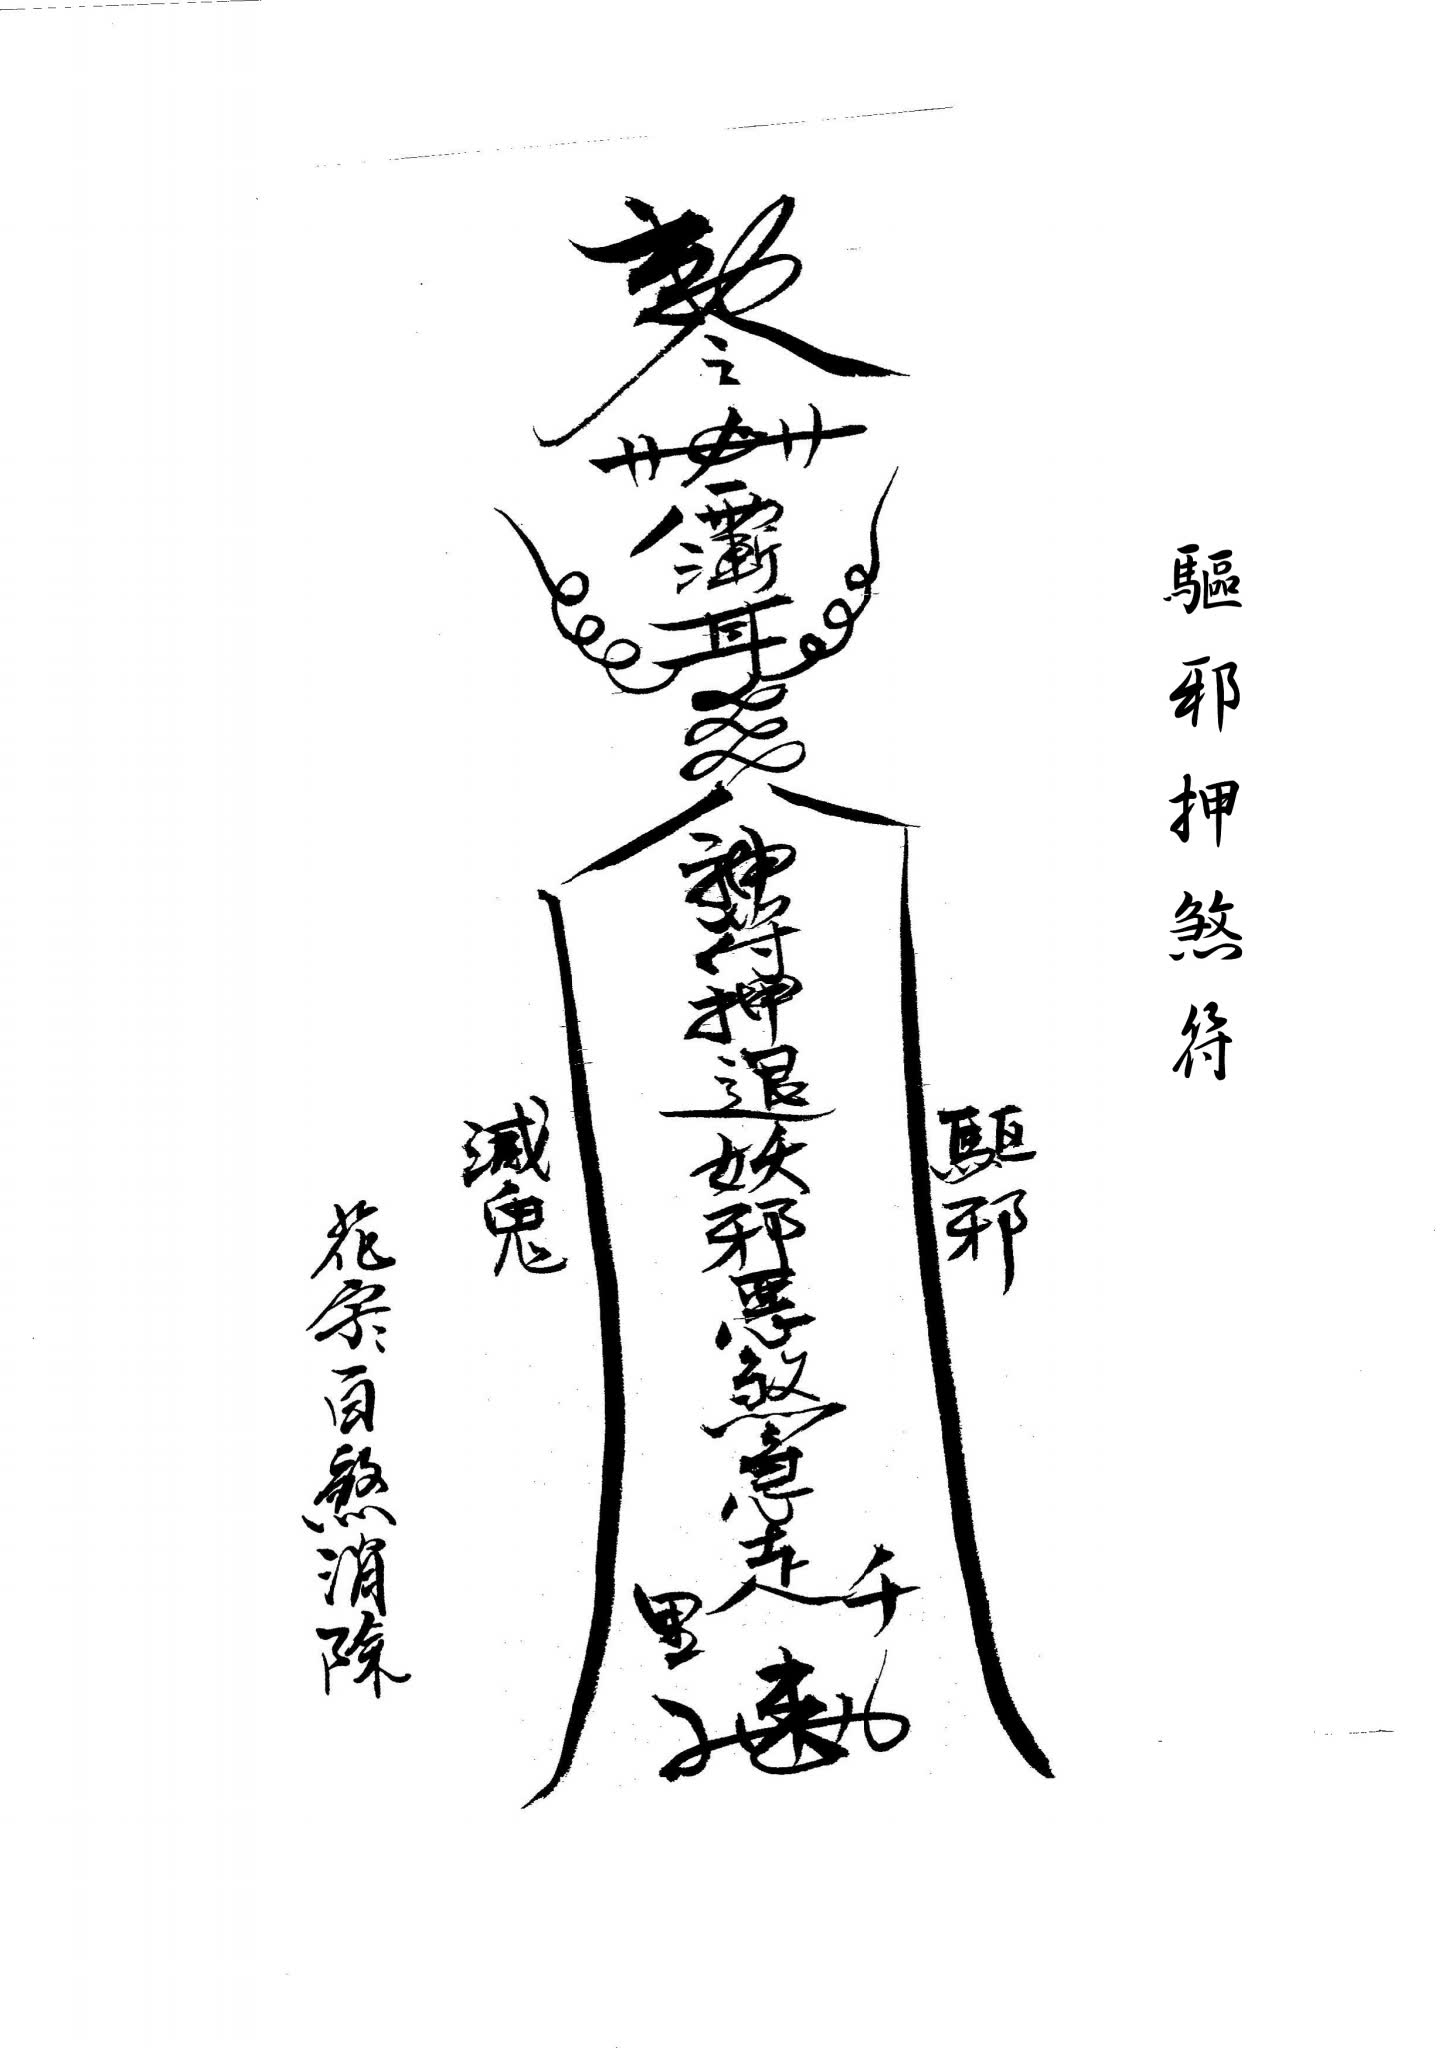 驅邪押煞符
驅邪
敕令
神符押退妖邪惡煞急走千里
速
滅鬼
花宗百煞消除